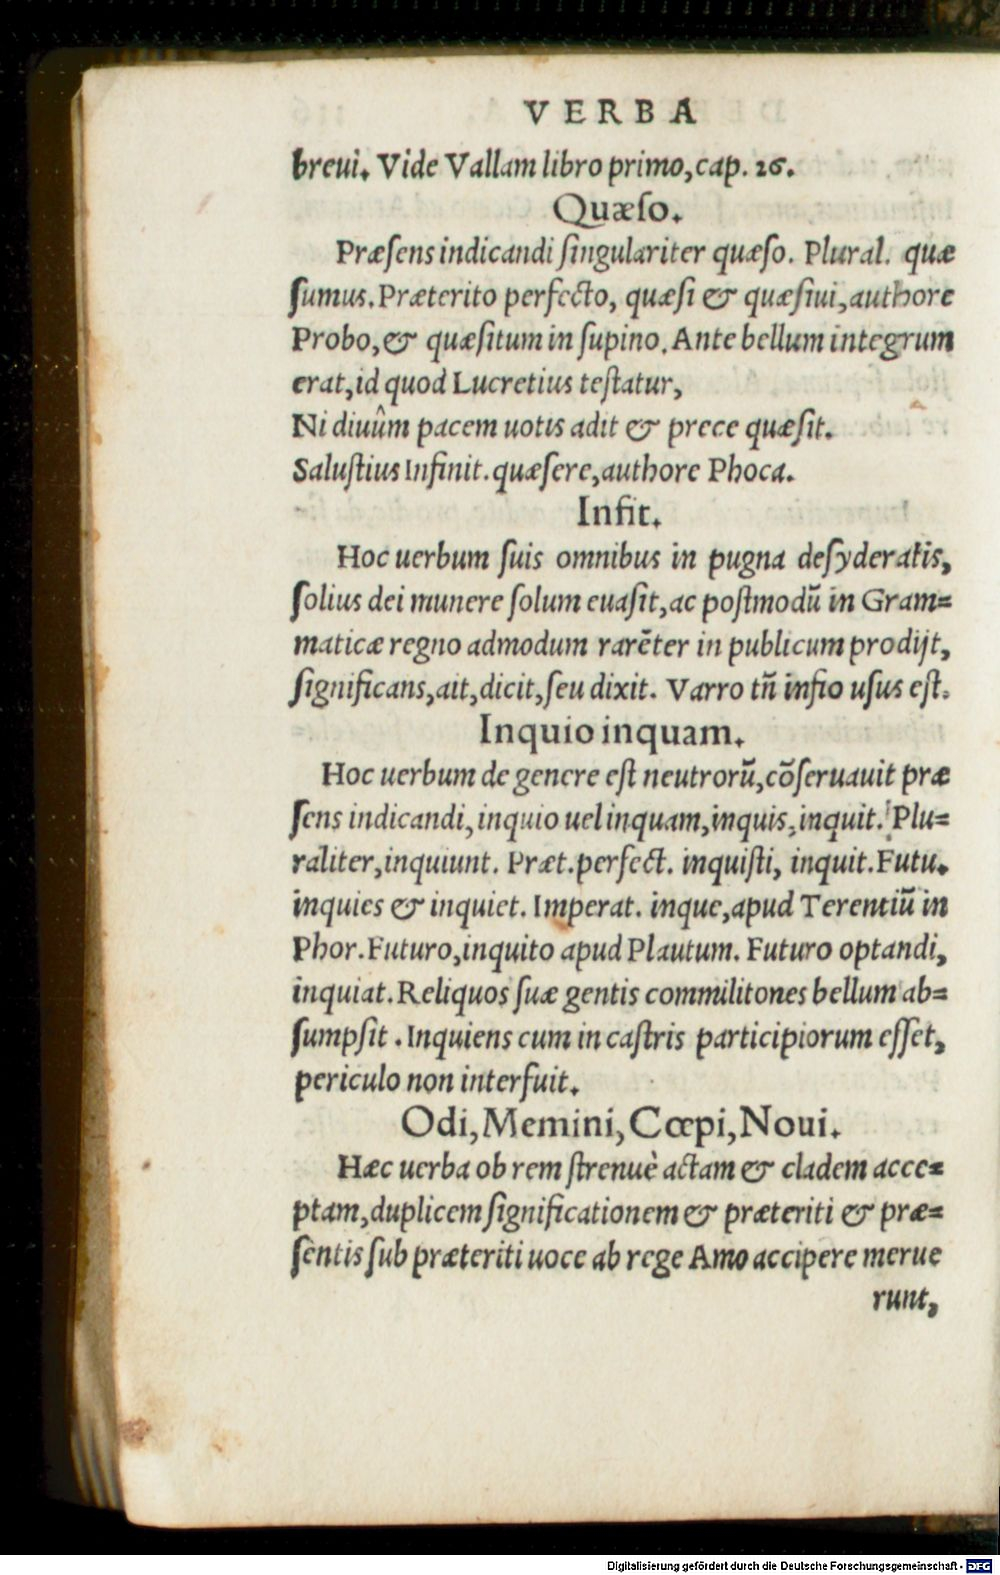 VERBA
breui. Vide Vallam libro primo, cap. 26.
Quæso.
Præſens indicandi ſingulariter quæſo. Plural. quæ
ſumus. Præterito perfecto, quæſi & quæſiui, authore
Probo, & quæſitum in ſupino. Ante bellum integrum
erat, id quod Lucretius teſtatur,
Ni diuûm pacem uotis adit & prece quæſit.
Saluſtius Infinit. quæſere, authore Phoca.
Infit.
Hoc uerbum ſuis omnibus in pugna deſyderatis,
ſolius dei munere ſolum euaſit, ac poſtmodū in Gram=
maticæ regno admodum rarēter in publicum prodijt,
ſignificans, ait, dicit, ſeu dixit. Varro tñ infio uſus eſt.
Inquio inquam.
Hoc uerbum de genere eſt neutrorū, cōſeruauit præ
ſens indicandi, inquio uel inquam, inquis, inquit. Plu=
raliter, inquiunt. Præt. perfect. inquiſti, inquit. Futu.
inquies & inquiet. Imperat. inque, apud Terentiū in
Phor. Futuro, inquito apud Plautum. Futuro optandi,
inquiat. Reliquos ſuæ gentis commilitones bellum ab=
ſumpſit. Inquiens cum in caſtris participiorum eſſet,
periculo non interfuit.
Odi, Memini, Cœpi, Noui.
Hæc uerba ob rem ſtrenuè actam & cladem acce=
ptam, duplicem ſignificationem & præteriti & præ=
ſentis ſub præteriti uoce ab rege Amo accipere merue
runt,
Digitalisierung gefördert durch die Deutsche Forschungsgemeinschaft - DFG